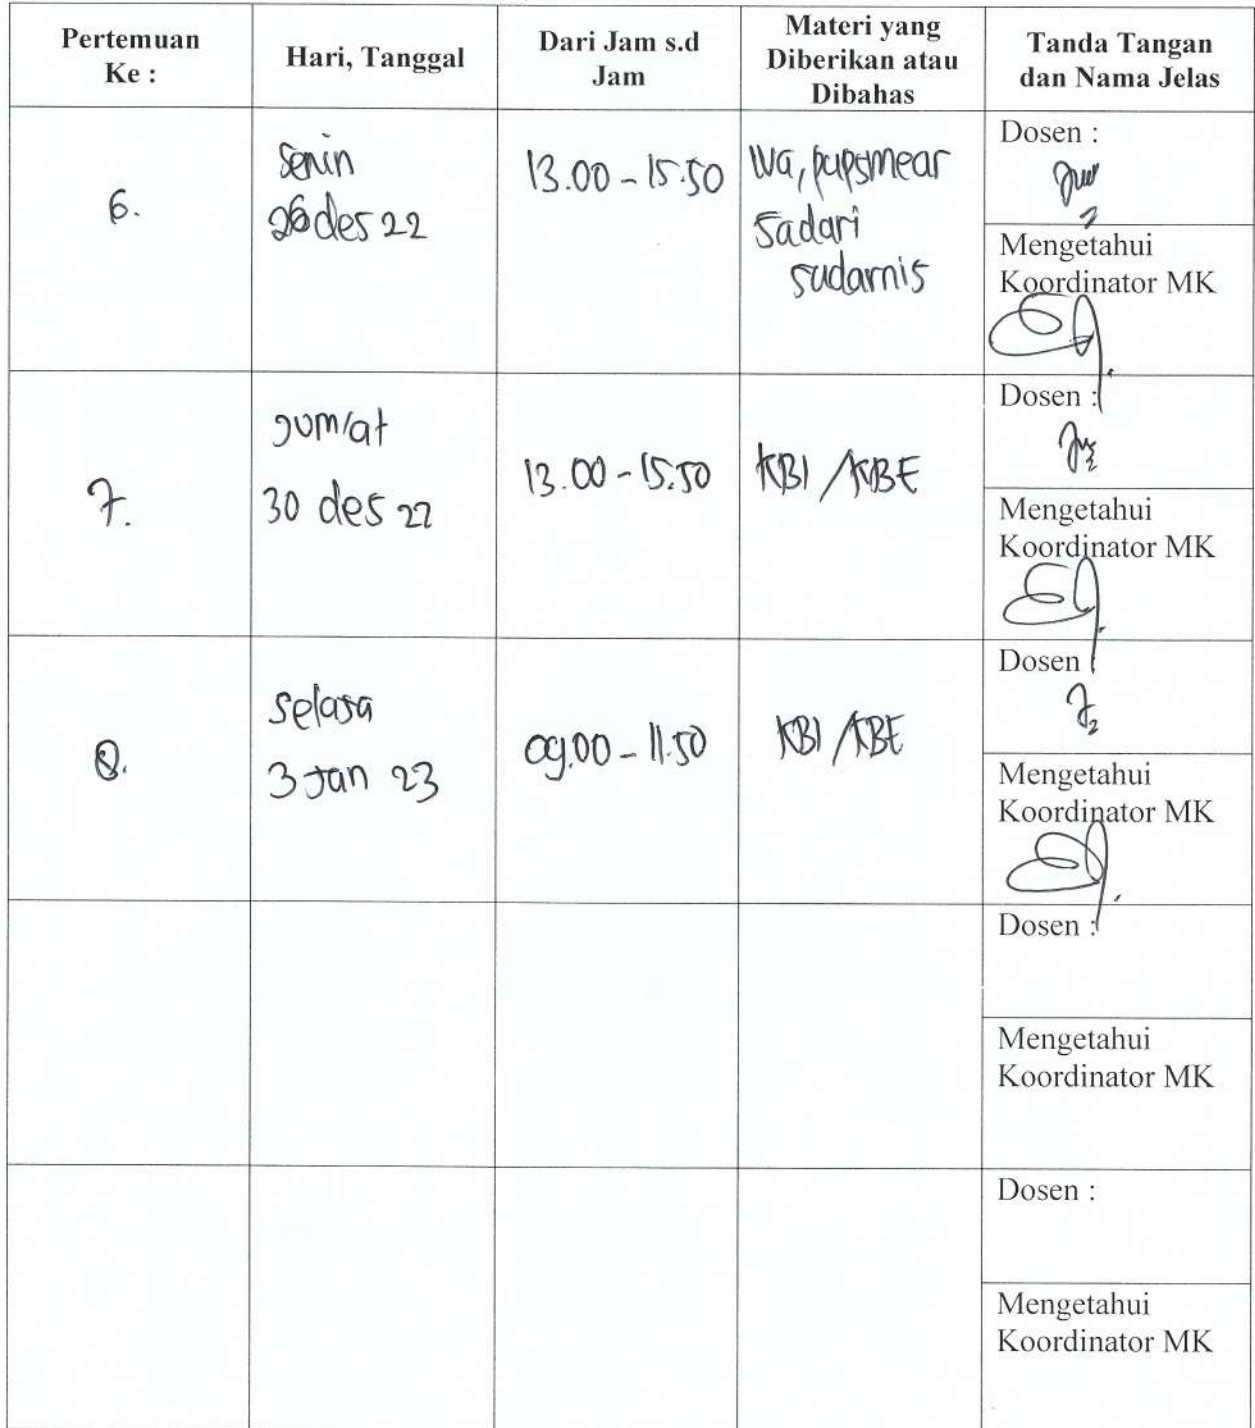 Pertemuan
Ke :
Hari, Tanggal
Dari Jam s.d
Jam
Materi yang
Diberikan atau
Dibahas
Tanda Tangan
dan Nama Jelas
6.
Senin
26 des 22
13.00 - 15.50
papsmear
Sadari
sudarnis
Dosen :
Mengetahui
Koordinator MK
7.
Jum'at
30 des 22
13.00 - 15.50
KBI / KBE
Dosen :
Mengetahui
Koordinator MK
8.
Selasa
3 Jan 23
09.00 - 11.50
KBI / KBE
Dosen :
Mengetahui
Koordinator MK
Dosen :
Mengetahui
Koordinator MK
Dosen :
Mengetahui
Koordinator MK